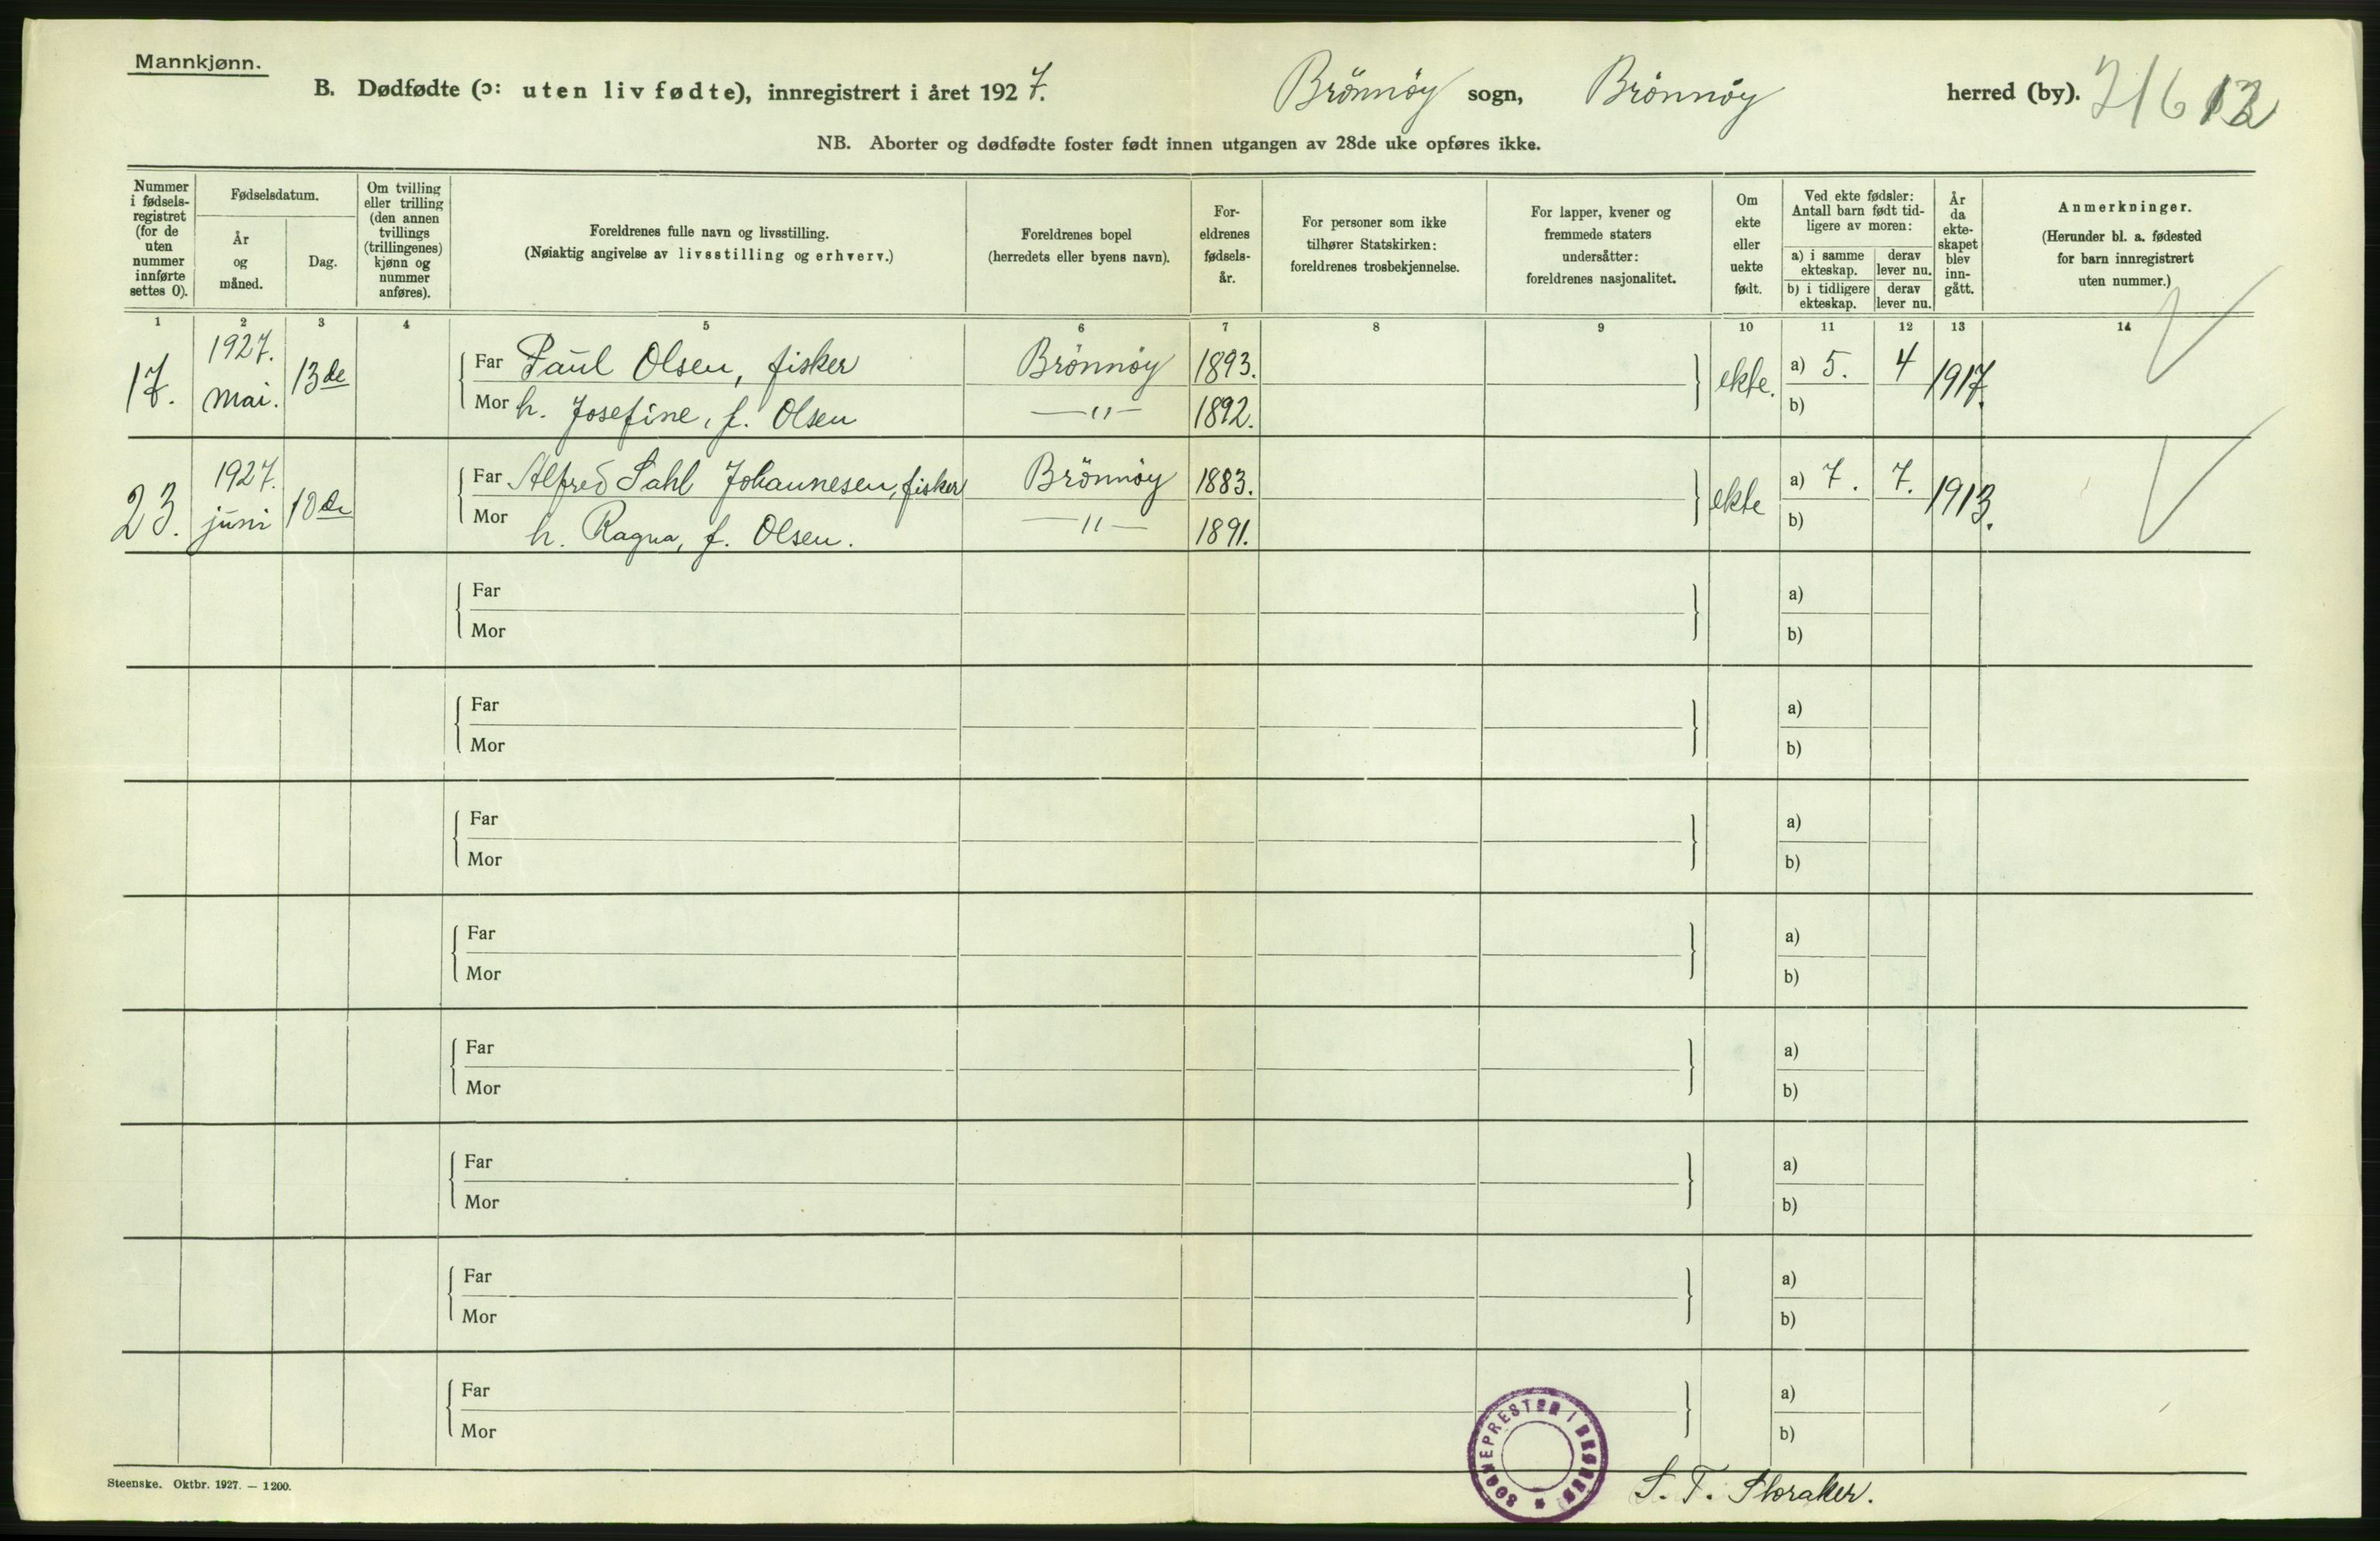 Mannkjønn.
B. Dødfødte (ɔ: uten liv fødte), innregistrert i året 1927. Brönnöy sogn, Brönnöy herred (by).
NB. Aborter og dødfødte foster født innen utgangen av 28de uke opføres ikke.
Nummer i fødsels-registret (for de uten nummer innførte settes 0).
Fødselsdatum.
År og måned.
Dag.
Om tvilling eller trilling (den annen tvillings (trillingenes) kjønn og nummer anføres).
Foreldrenes fulle navn og livsstilling.
(Nøiaktig angivelse av livsstilling og erhverv.)
Foreldrenes bopel
(herredets eller byens navn).
For-eldrenes fødsels-år.
For personer som ikke tilhører Statskirken: foreldrenes trosbekjennelse.
For lapper, kvener og fremmede staters undersåtter: foreldrenes nasjonalitet.
Om ekte eller uekte født.
Ved ekte fødsler: Antall barn født tid-ligere av moren:
a) i samme ekteskap. derav lever nu.
b) i tidligere ekteskap. derav lever nu.
År da ekte-skapet blev inn-gått.
Anmerkninger.
(Herunder bl. a. fødested for barn innregistrert uten nummer.)
1 2 3 4 5 6 7 8 9 10 11 12 13 14
17. 1927. mai. 13de
Far Paul Olsen, fisker Brönnöy 1893. ekte. a) 5. 4 1917.
Mor h. Josefine, f. Olsen —"— 1892. b)
23. 1927. juni 10de
Far Alfred Dahl Johannesen, fisker Brönnöy 1883. ekte a) 7. 7. 1913.
Mor h. Ragna, f. Olsen. —"— 1891. b)
Far a)
Mor b)
Far a)
Mor b)
Far a)
Mor b)
Far a)
Mor b)
Far a)
Mor b)
Far a)
Mor b)
Far a)
Mor b)
Far a)
Mor b)
Steenske. Oktbr. 1927. — 1200.
SOGNEPRESTEN I BRØNNØY
S. T. Storaker.